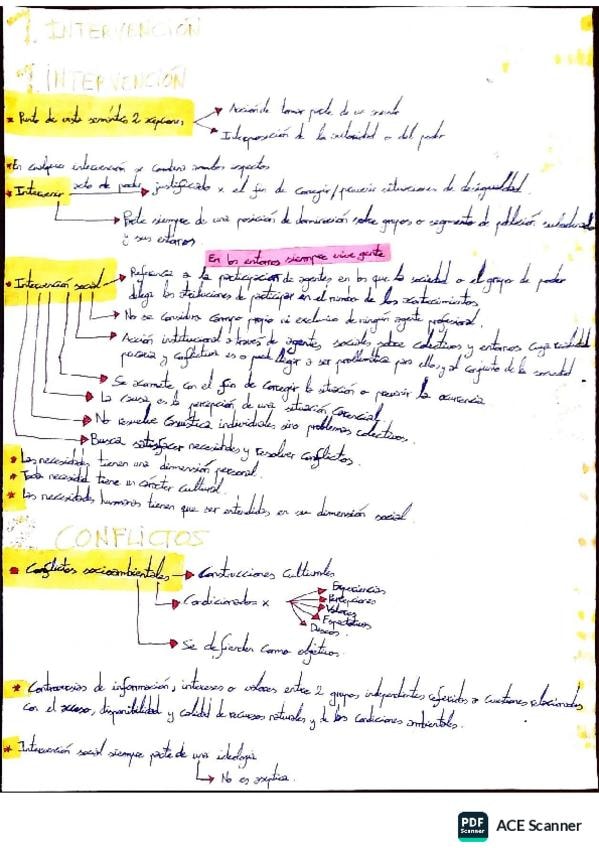 1. INTERVENCIÓN
1. INTERVENCIÓN
Punto de vista semántico 2 acepciones → Acción de tomar parte de un asunto
→ Interposición de la autoridad o del poder
* En cualquier intervención se combina ambos aspectos
* Intervenir acto de poder → justificado x el fin de corregir/prevenir situaciones de desigualdad.
→ Parte siempre de una posición de dominación sobre grupos o segmentos de población
y sus entornos
En los entornos siempre vive gente
* Intervención social → Referencia a la participación de agentes en los que la sociedad o el grupo de poder
delega las atribuciones de participar en el rumbo de los acontecimientos
→ No se considera campo propio ni exclusivo de ningún agente profesional.
→ Acción institucional a través de agentes sociales sobre colectivos y entornos cuya realidad
precaria y conflictiva es o puede llegar a ser problemática para ellos y al conjunto de la sociedad
→ Se acomete con el fin de corregir la situación o prevenir la ocurrencia
→ La causa es la percepción de una situación carencial
→ No resuelve casuística individuales sino problemas colectivos.
→ Busca satisfacer necesidades y resolver conflictos.
* Las necesidades tienen una dimensión personal.
* Toda necesidad tiene un carácter cultural.
* Las necesidades humanas tienen que ser entendidas en su dimensión social.
CONFLICTOS
Conflictos socioambientales → Construcciones culturales
→ Condicionados x → Experiencias
→ Percepciones
→ Valores
→ Expectativas
→ Deseos.
→ Se defienden como objetivos.
* Controversias de información, intereses o valores entre 2 grupos independientes referidos a cuestiones relacionadas
con el acceso, disponibilidad y calidad de recursos naturales y de las condiciones ambientales.
* Intervención social siempre parte de una ideología
→ No es aséptica.
PDF
Scanner
ACE Scanner